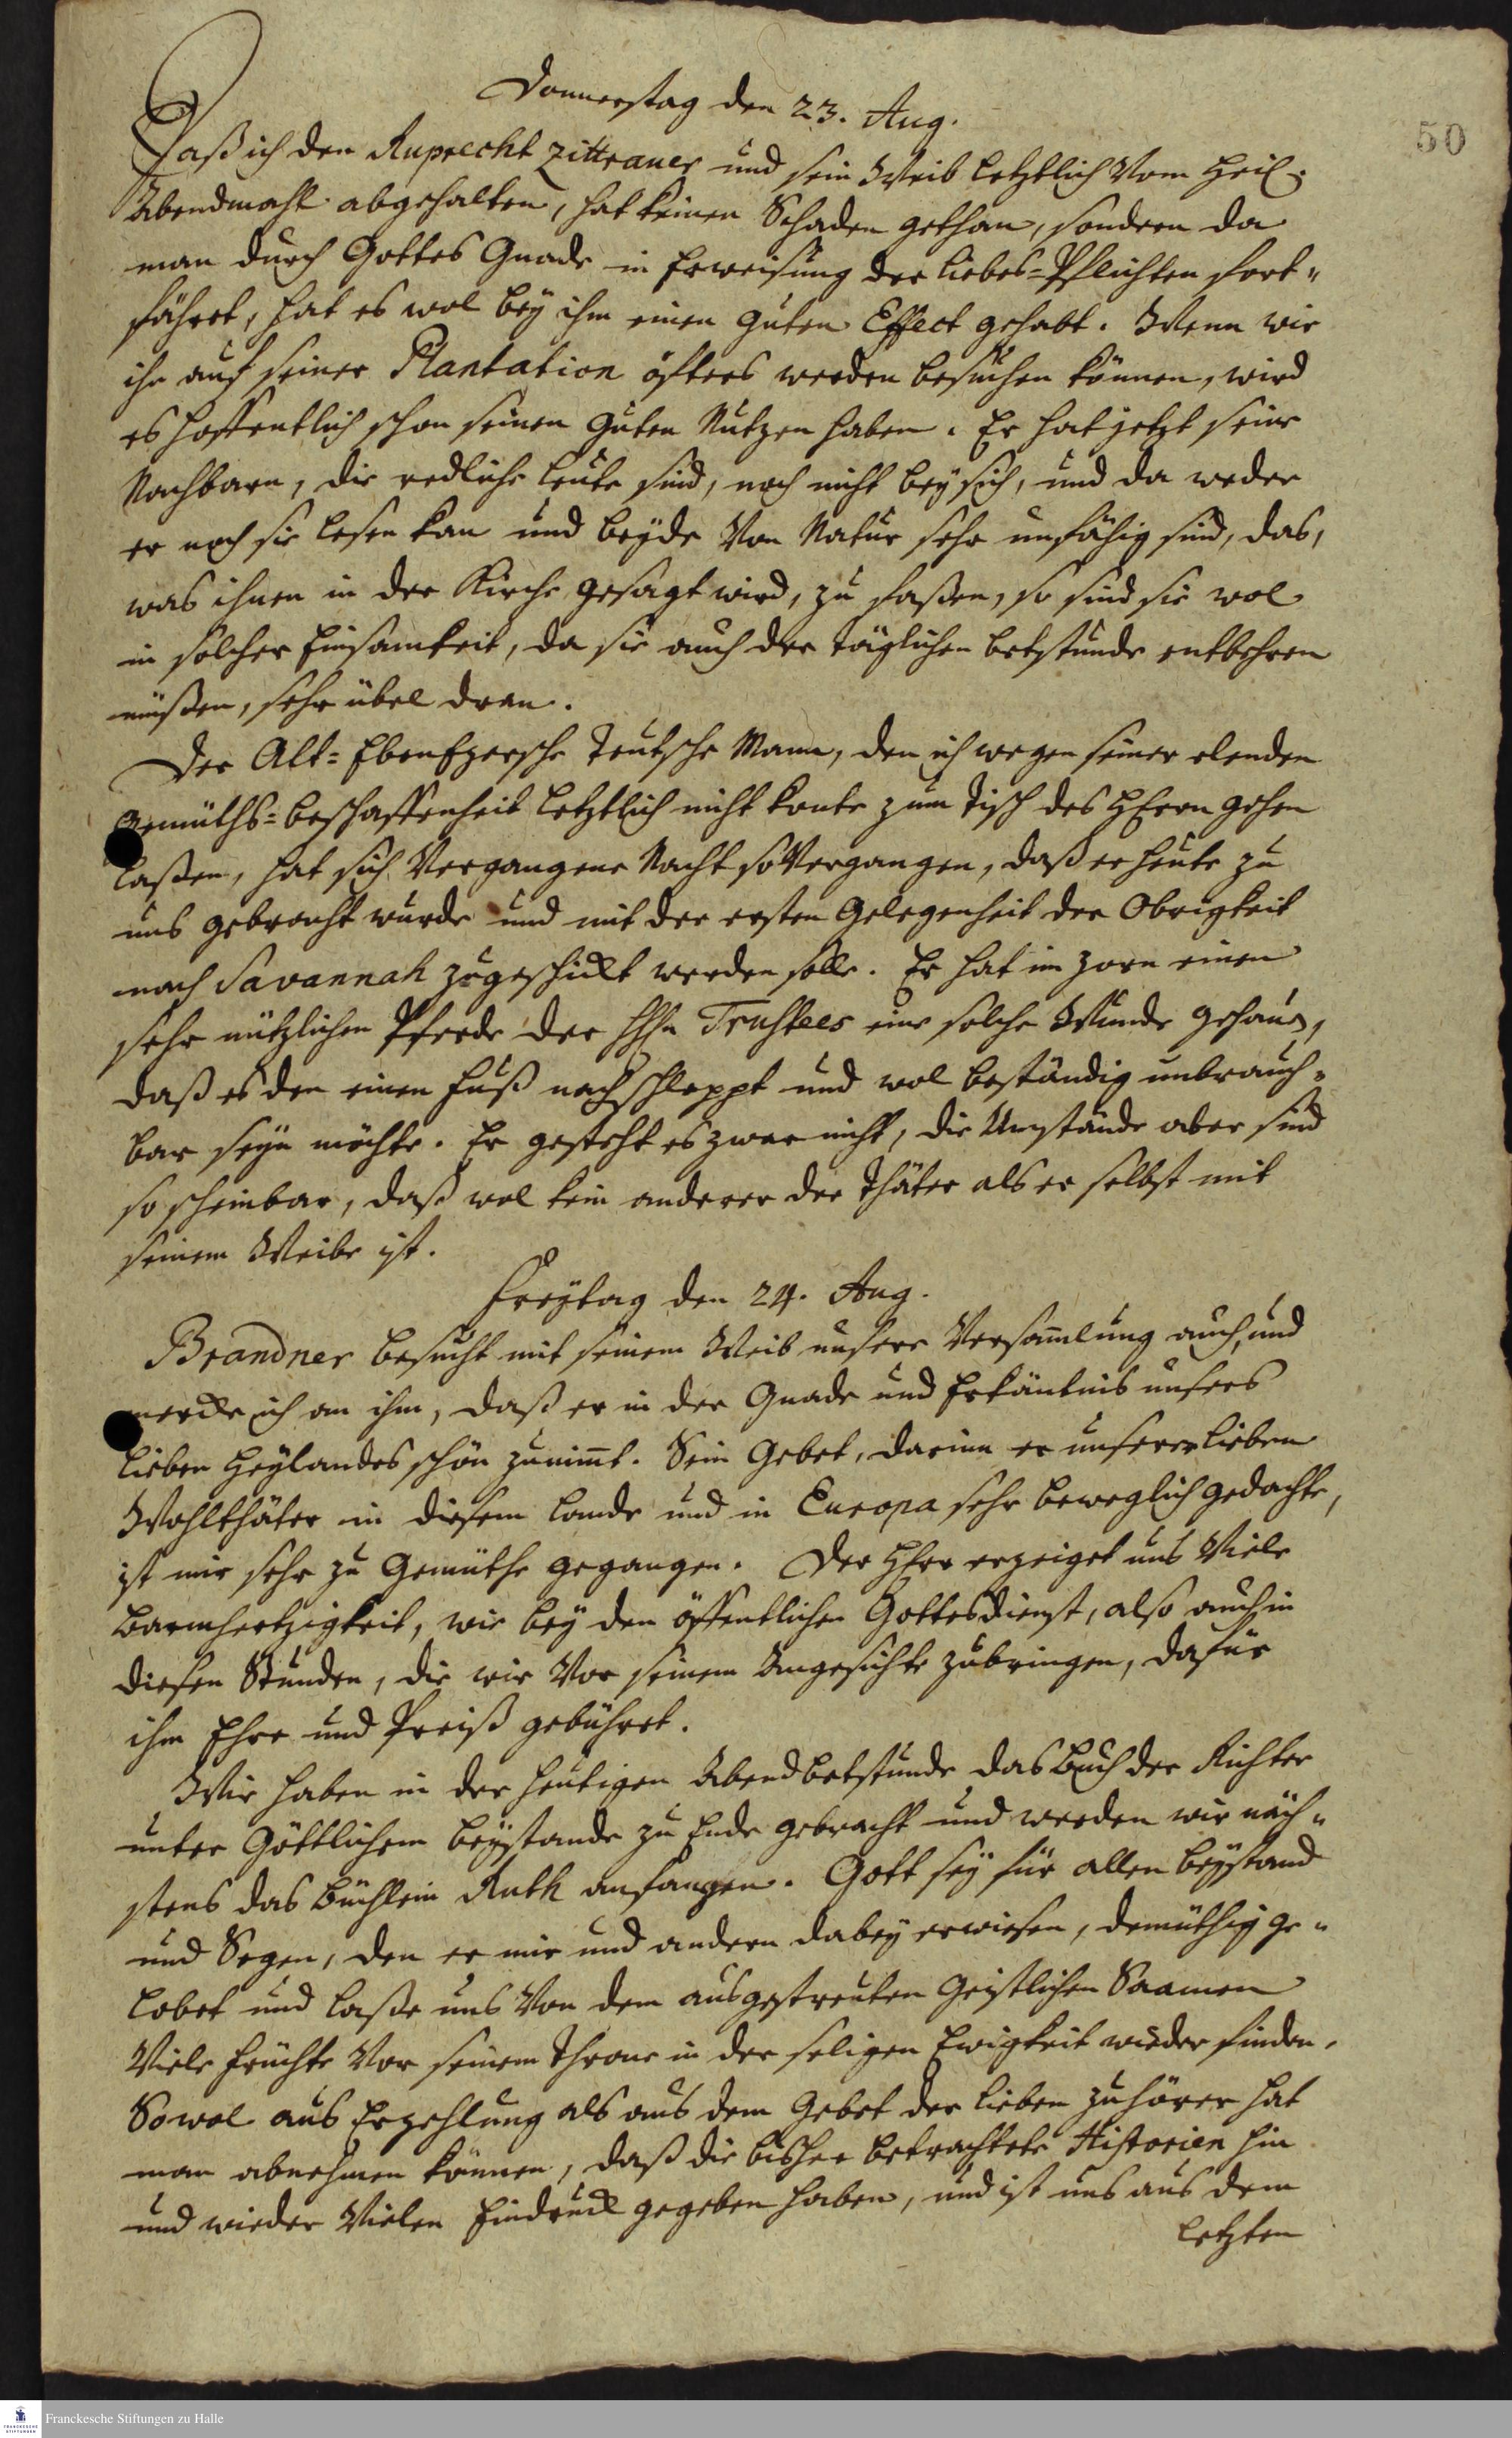 Donnerstag den 23. Aug.
50
Daß ich den Ruprecht Zittrauer und sein Weib letztlich vom Heil.
Abendmahl abgehalten, hat keinen Schaden gethan, sondern da
man durch Gottes Gnade in Erweisung der Liebes-Pflichten fort-
fähret, hat es wol bey ihm einen guten Effect gehabt. Wenn wir
ihn auf seiner Plantation öfters werden besuchen können, wird
es hoffentlich schon seinen guten Nutzen haben. Er hat jetzt seine
Nachbarn, die redliche Leute sind, noch nicht bey sich, und da weder
er noch sie lesen kan und beyde von Natur sehr unfähig sind, das,
was ihnen in der Kirche gesagt wird, zu faßen, so sind sie wol
in solcher Einsamkeit, da sie auch der täglichen Betstunde entbehren
müßen, sehr übel dran.
Der Alt-Ebenezersche Teutsche Mann, den ich wegen seiner elenden
Gemüths-beschaffenheit letztlich nicht konte zum Tisch des HErrn gehen
laßen, hat sich vergangene Nacht so vergangen, daß er heute zu
uns gebracht wurde und mit der ersten Gelegenheit der Obrigkeit
nach Savannah zugeschickt werden solle. Er hat im Zorn einen
sehr nützlichen Pferde der HHn Trustees eine solche Wunde gehauen,
daß es den einen Fuß nachschleppt und wol beständig unbrauch-
bar seyn möchte. Er gesteht es zwar nicht, die Umstände aber sind
so scheinbar, daß wol kein anderer der Thäter als er selbst mit
seinem Weibe ist.
Freytag den 24. Aug.
Brandner besucht mit seinem Weib unsere Versamlung auch, und
mercke ich an ihm, daß er in der Gnade und Erkäntnis unsers
lieben Heylandes schön zunimt. Sein Gebet, darinn er unserer lieben
Wohlthäter in diesem Lande und in Europa sehr beweglich gedachte,
ist mir sehr zu Gemüthe gegangen. Der HErr erzeiget uns viele
Barmhertzigkeit, wie bey den öffentlichen Gottesdienst, also auch in
diesen Stunden, die wir vor seinem Angesichte zubringen, dafür
ihm Ehre und Preiß gebühret.
Wir haben in der heutigen Abendbetstunde das Buch der Richter
unter Göttlichem beystande zu Ende gebracht und werden wir näch-
stens das Büchlein Ruth anfangen. Gott sey für allen beystand
und Segen, den er mir und andern dabey erwiesen, demüthig ge-
lobet und laße uns von dem ausgestreuten geistlichen Saamen
viele Früchte vor seinem Throne in der seligen Ewigkeit wieder finden.
Sowol aus Erzehlung als aus dem Gebet der lieben Zuhörer hat
man abnehmen können, daß die bisher betrachtete Historien hin
und wieder vielen Eindruck gegeben haben, und ist uns aus dem
letzten
Franckesche Stiftungen zu Halle